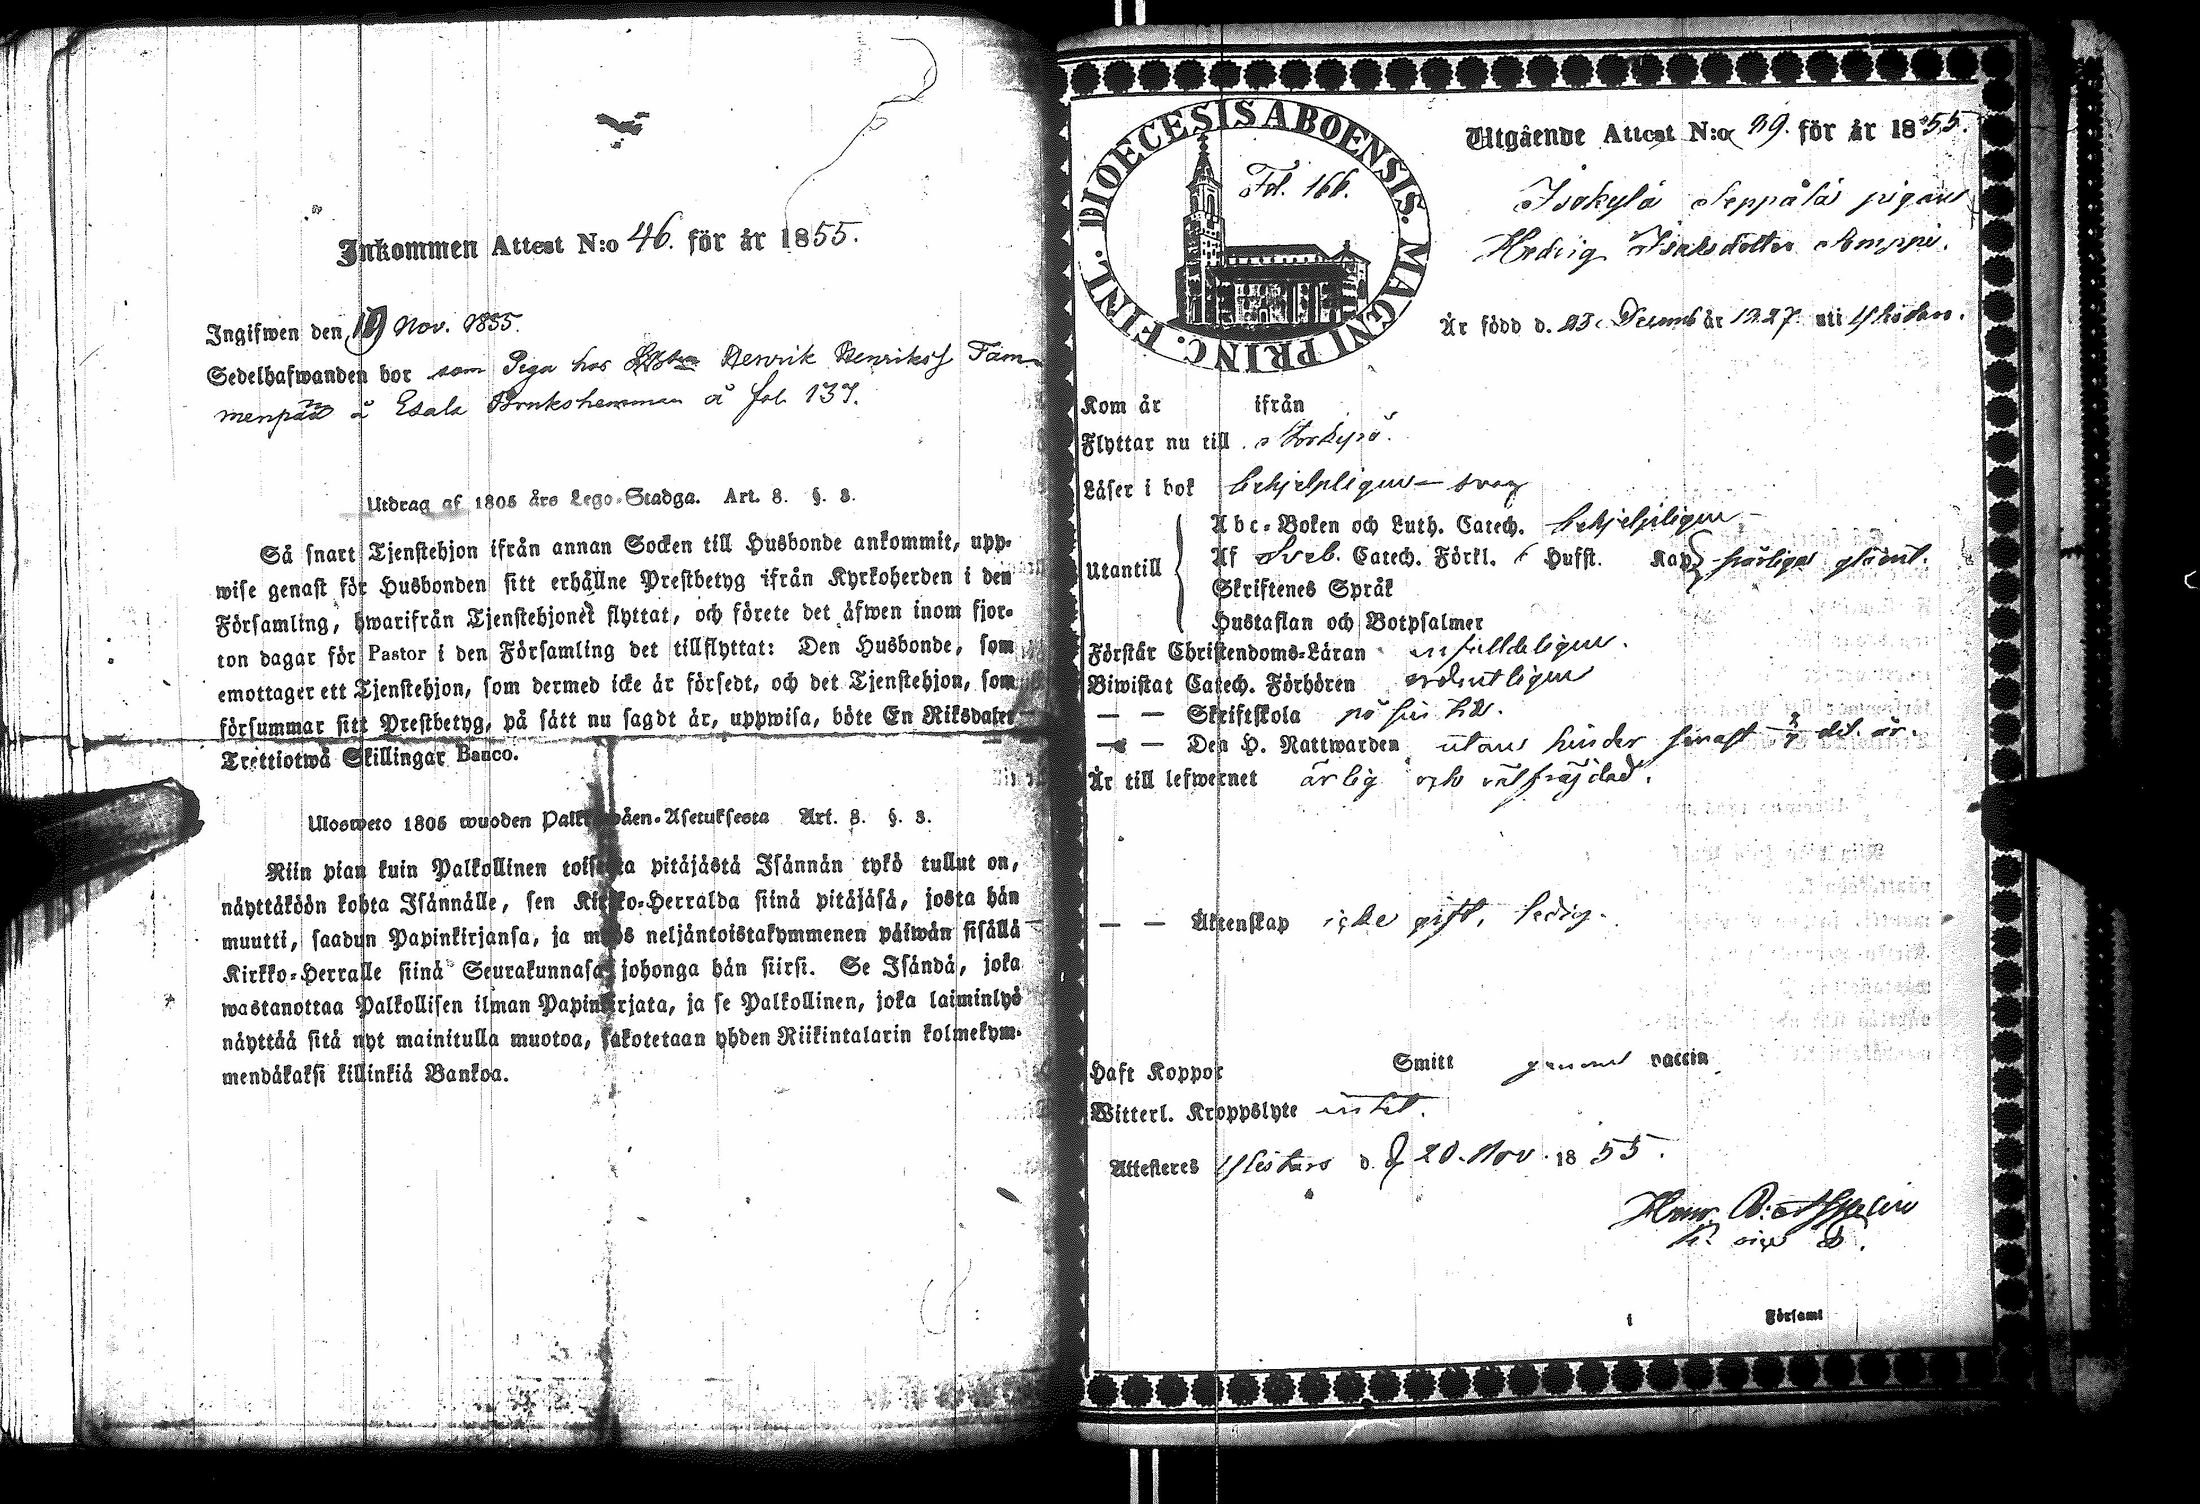 Inkommen Attest N:o 46. för år 1855.
Ingifwen den 19 Nov. 1855.
Sedelhafwanden bor som Piga hos Henrik Henrikss Tam-
menpää å Esala Brukshemman å fol. 137.
Utdrag af 1805 års Lego-Stadga. Art. 3. §. 3.
Så snart Tjenstehjon ifrån annan Socken till Husbonde ankommit, upp-
wise genast för Husbonden sitt erhållne Prestbetyg ifrån Kyrkoherden i den
Församling, hwarifrån Tjenstehjonet flyttat, och förete det äfwen inom fjor-
ton dagar för Pastor i den Församling det tillflyttat: Den Husbonde, som
emottager ett Tjenstehjon, som dermed icke är försedt, och det Tjenstehjon, som
försummar sitt Prestbetyg, på sätt nu sagdt är, uppwisa, böte En Riksdaler
Trettiotwå Skillingar Banco.
Ulosweto 1805 wuoden Palkk wåen-Asetuksesta Art. 3. §. 3.
Niin pian kuin Palkollinen toisesta pitäjästä Isännän tykö tullut on,
näyttäköön kohta Isännälle, sen Kirkko-Herralda siinä pitäjäsä, josta hän
muutti, saadun Papinkirjansa, ja myös neljäntoistakymmenen päiwän sisällä
Kirkko-Herralle siinä Seurakunnasa johonga hän siirsi. Se Isändä, joka
wastanottaa Palkollisen ilman Papinkirjata, ja se Palkollinen, joka laiminlyö
näyttää sitä nyt mainitulla muotoa, sakotetaan yhden Riikintalarin kolmekym-
mendäkaksi killinkiä Bankoa.
DIOECESIS ABOENSIS. MAGNI PRINC. FINL.
Fol. 166.
Utgående Attest N:o 39. för år 1855.
Isokylä Seppälä pigan
Hedvig Isaksdotter
Är född d. 23. Decemb år 1827. uti Ylistaro.
Kom år ifrån
Flyttar nu till Storkyrö.
Läser i bok behjelpligen - svag
Utantill
Abc-Boken och Luth. Catech. behjelpligen
Af Sveb. Catech. Förkl. Husst. Kap
Skriftenes Språk
Hustaflan och Botpsalmer
Förstår Christendoms-Läran enfalldeligen.
Biwistat Catech. Förhören ordentligen
— — Skriftskola på sin tid.
— — Den H. Nattwarden utan hinder senast d. år.
Är till lefwernet ärlig och välfräjdad.
— — Äktenskap icke gift, ledig.
Haft Koppor Smitt genom vaccin
Witterl. Kroppslyte intet.
Attesteres Ylistaro d. 20. Nov. 1855.
i Församl